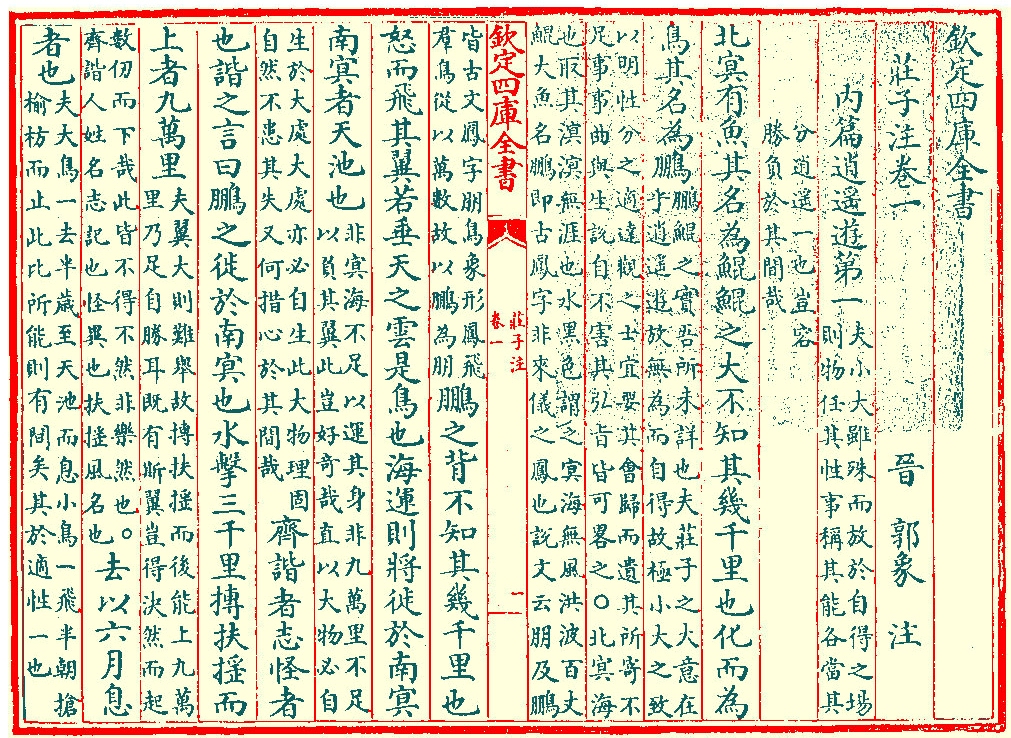 欽定四庫全書
莊子注卷一 晉 郭象 注
內篇逍遙遊第一
夫小大雖殊而放於自得之場
則物任其性事稱其能各當其
分逍遙一也豈容
勝負於其間哉
北冥有魚其名為鯤鯤之大不知其幾千里也化而為
鳥其名為鵬
鵬鯤之實吾所未詳也夫莊子之大意在
乎逍遙遊放無為而自得故極小大之致
以明性分之適達觀之士宜要其會歸而遺其所寄不
足事事曲與生說自不害其弘旨皆可畧之○北冥海
也取其溟漠無涯也水黑色謂之冥海無風洪波百丈
鯤大魚名鵬即古鳳字非來儀之鳳也說文云朋及鵬
欽定四庫全書
莊子注
卷一
一
皆古文鳳字朋鳥象形鳳飛
羣鳥從以萬數故以鵬為朋
鵬之背不知其幾千里也
怒而飛其翼若垂天之雲是鳥也海運則將徙於南冥
南冥者天池也
非冥海不足以運其身非九萬里不足
以負其翼此豈好奇哉直以大物必自
生於大處大處亦必自生此大物理固
自然不患其失又何措心於其間哉
齊諧者志怪者
也諧之言曰鵬之徙於南冥也水擊三千里摶扶搖而
上者九萬里
夫翼大則難舉故摶扶搖而後能上九萬
里乃足自勝耳既有斯翼豈得決然而起
數仞而下哉此皆不得不然非樂然也○
齊諧人姓名志記也怪異也扶搖風名也
去以六月息
者也
夫大鳥一去半歳至天池而息小鳥一飛半朝搶
榆枋而止此比所能則有間矣其於適性一也